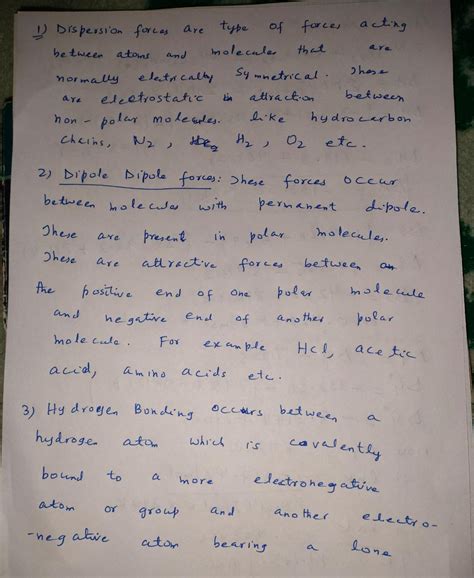 1) Dispersion forces are type of forces acting
between atoms and molecules that are
normally eletrically Symmetrical. These
are electrostatic in attraction between
non-polar molecules. Like hydrocarbon
chains, N2, H2, O2 etc.
2) Dipole Dipole forces: These forces occur
between molecules with permanent dipole.
These are present in polar molecules.
These are attractive forces between
the positive end of one polar molecule
and negative end of another polar
molecule. For example HCl, acetic
acid, amino acids etc.
3) Hydrogen Bonding occurs between a
hydrogen atom which is covalently
bound to a more electronegative
atom or group and another electro-
-negative atom bearing a lone